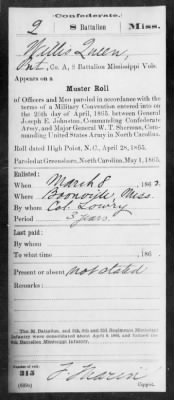 Confederate.
2 8 Battalion Miss.
Willis Green
Pvt., Co. A, 8 Battalion Mississippi Vols.
Appears on a
Muster Roll
of Officers and Men paroled in accordance with the
terms of a Military Convention entered into on
the 26th day of April, 1865, between General
Joseph E. Johnston, Commanding Confederate
Army, and Major General W. T. Sherman, Com-
manding United States Army in North Carolina.
Roll dated High Point, N. C., April 28, 1865.
Paroled at Greensboro, North Carolina, May 1, 1865.
Enlisted:
When March 8, 1862.
Where Boonville, Miss.
By whom Col. Lowry
Period 3 years.
Last paid:
By whom
To what time , 186 .
Present or absent not stated
Remarks:
The 8th Battalion, and 5th, 8th and 32d Regiments Mississippi
Infantry were consolidated about April 9, 1865, and formed the
8th Battalion Mississippi Infantry.
Number of roll:
315
Copyist.